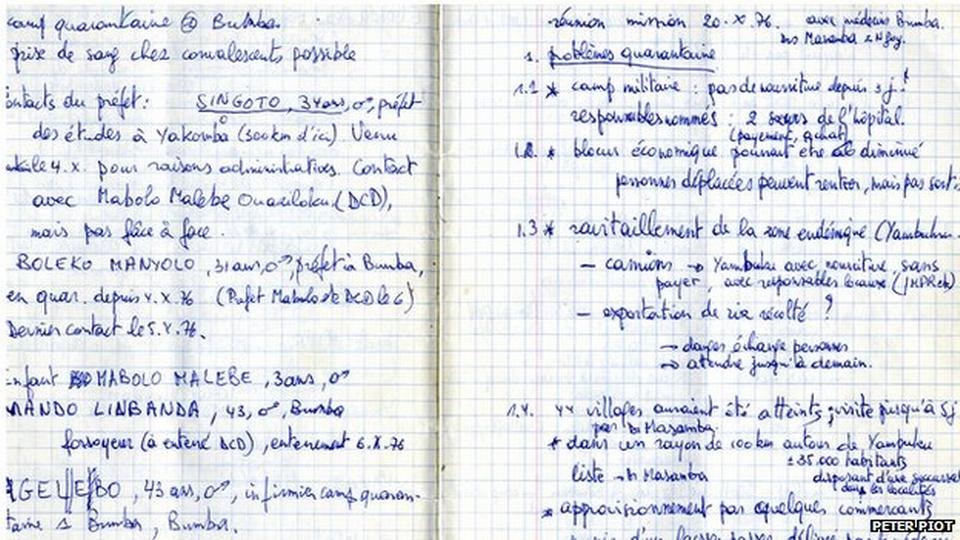 camp quarantaine @ Bumba.
prise de sang chez convalescents possible
contacts du préfet : SINGOTO, 34 ans, ♂, préfet
des études à Yakomba (300 km d'ici) Venu
le 4.x. pour raisons administratives. Contact
avec Mabolo Malebe (DCD),
mais pas face à face.
BOLEKO MANYOLO, 31 ans, ♂, préfet à Bumba,
en quar. depuis x.76 (Préfet Mabolo DCD le 6)
Dernier contact le 5.X.76.
Enfant MABOLO MALEBE, 3 ans, ♂
MANDO LINBANDA, 43, ♂, Bumba
fossoyeur (a enterré DCD), enterrement 6.X.76
, 43 ans, ♂, infirmier camp quaran-
taine Bumba, Bumba.
réunion mission 20.X.76. avec médecin Bumba.
Masamba
1. problèmes quarantaine
1.1 * camp militaire : pas de nourriture depuis 3 j !
responsables nommés : 2 de l'hôpital.
(payement, achat)
* blocus économique pourrait être diminué
personnes déplacées peuvent rentrer, mais pas
1.3 * ravitaillement de la zone endémique (Yambuku
– camions → Yambuku avec nourriture, sans
payer, avec responsables locaux
– exportation de riz récolté ?
→ danger échange personnes
→ attendre jusqu'à demain.
1.4. 44 villages auraient été atteints, visite jusqu'à 5j
par Dr Masamba.
* dans un rayon de 100 km autour de Yambuku
± 35.000 habitants
liste → Dr Masamba
disposant d'une
dans les localités
* approvisionnement par quelques commerçants
PETER PIOT